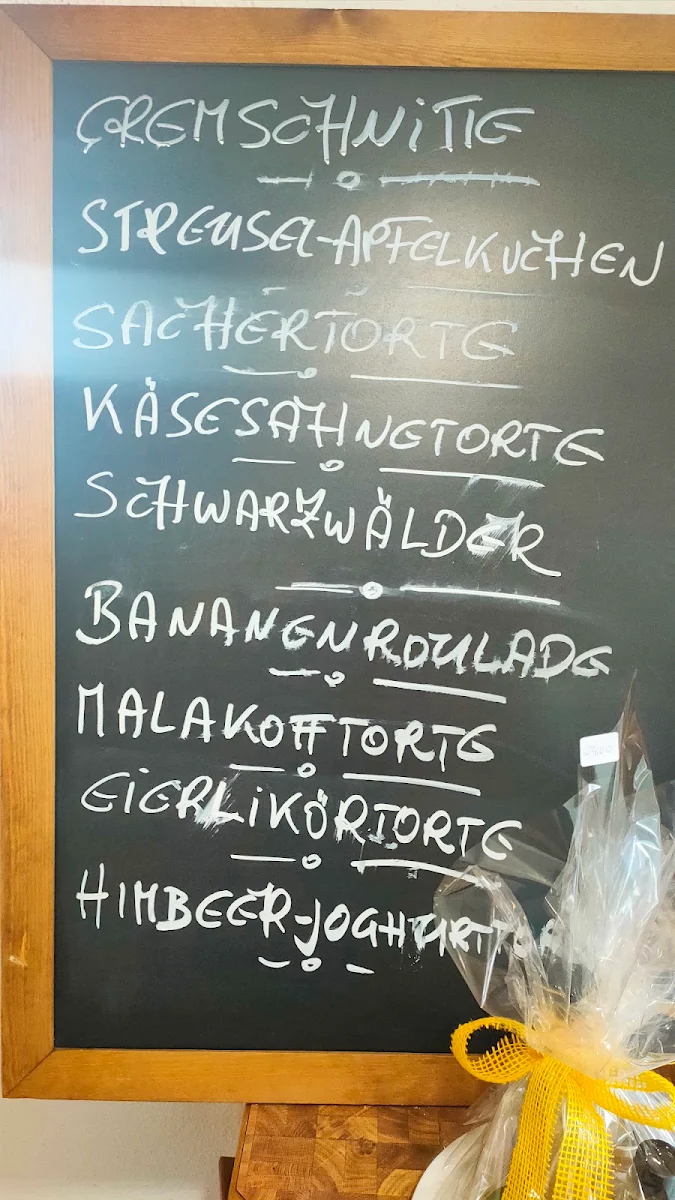 CREMSCHNITTE
STREUSEL-APFELKUCHEN
SACHERTORTE
KÄSESAHNETORTE
SCHWARZWÄLDER
BANANENROULADE
MALAKOFFTORTE
EIERLIKÖRTORTE
HIMBEER-JOGHURTTOR